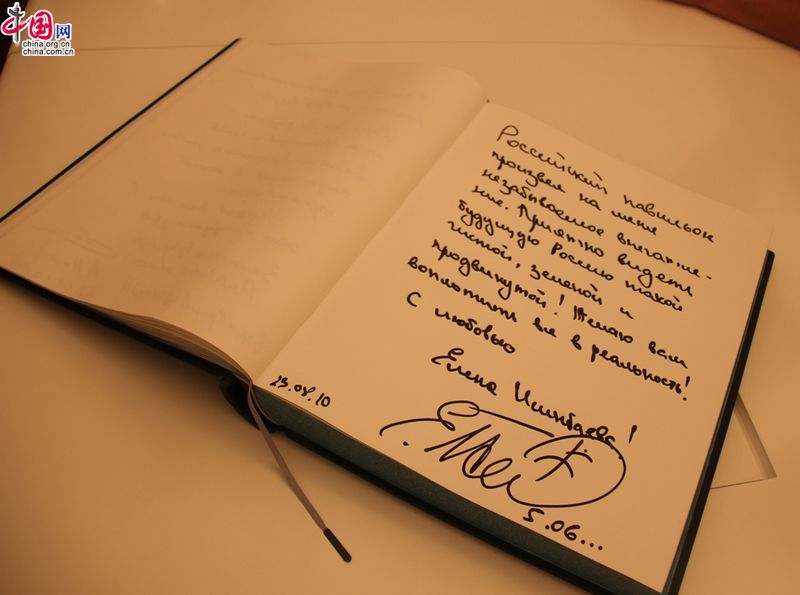 中国网
china.org.cn
china.com.cn
Российский павильон
произвел на меня
незабываемое впечатле-
ние. Приятно видеть
будущую Россию такой
чистой, зеленой и
продвинутой! Желаю вам
воплотить все в реальность!
С любовью
Елена Исинбаева!
23.08.10
5.06...